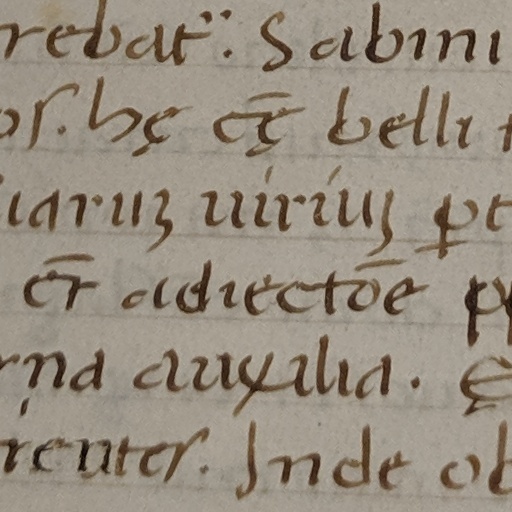 rebat᷑. Sabini
os. hę cę̄ belli
iaruʒ uiriuʒ ꝑt
cr̄ adiectōe
rna auxilia.
renter. Inde ob